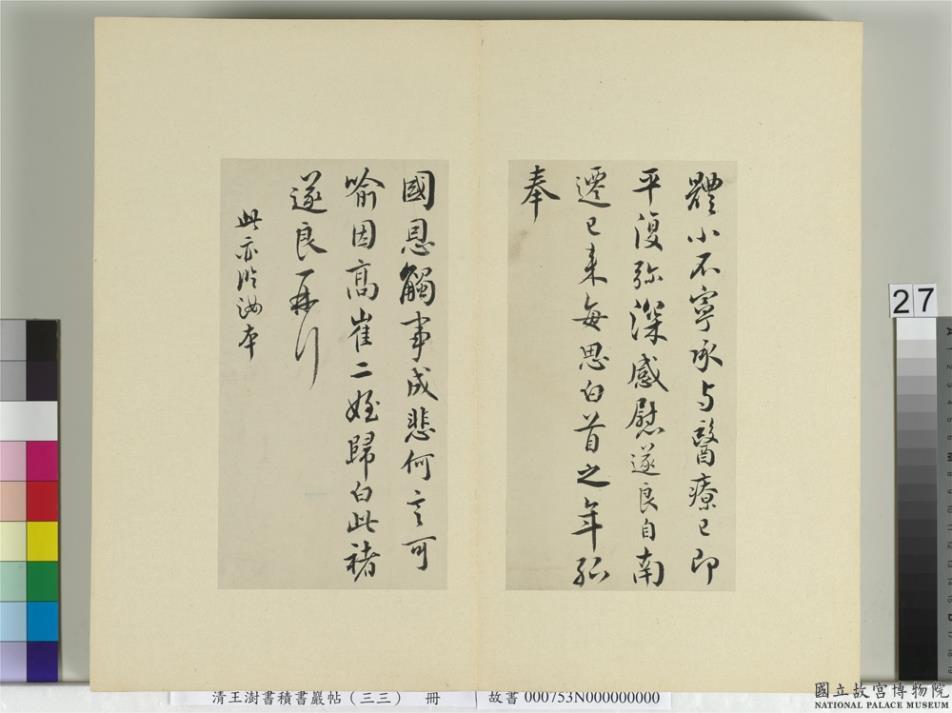 體小不寧承与醫療已即
平復弥深感慰遂良自南
遷已来每思白首之年孤
奉
國恩觸事成悲何言可
喻因高崔二姪歸白此褚
遂良再行
此亦临汝本
27
清王澍書積書巖帖（三三） 冊
故書 000753N000000000
國立故宮博物院
NATIONAL PALACE MUSEUM